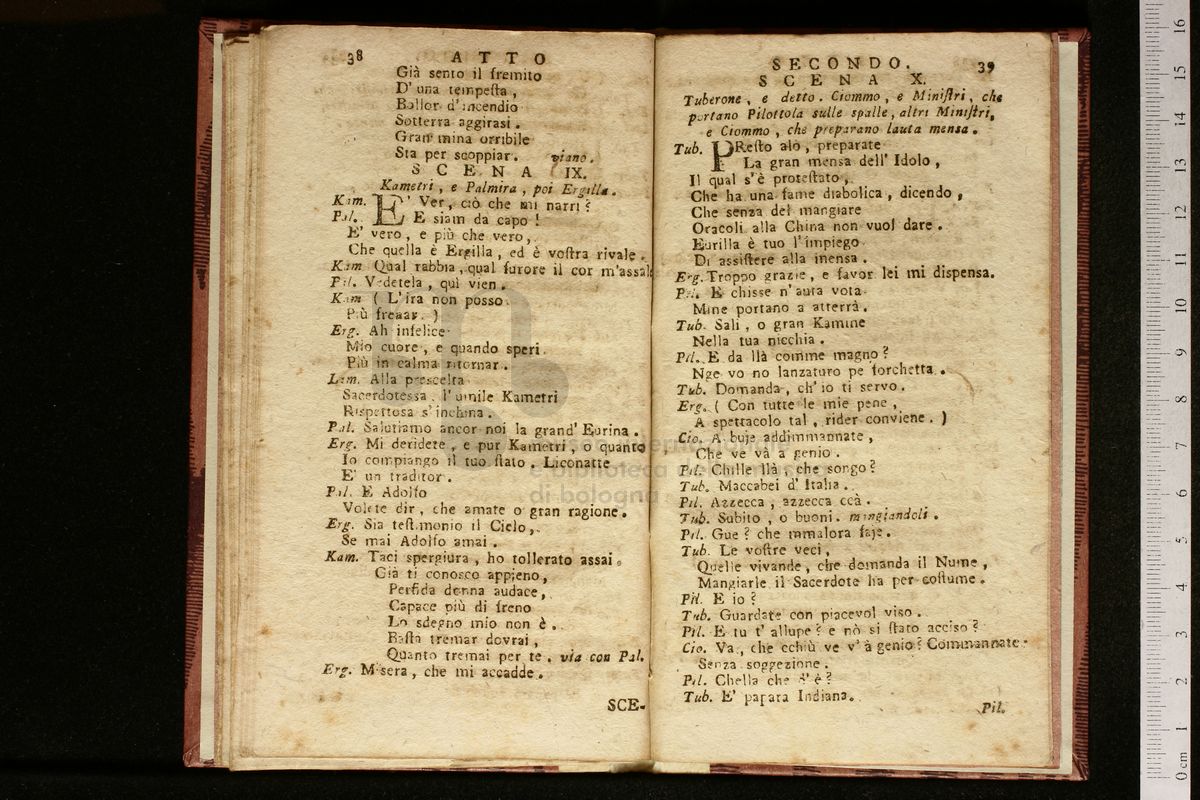 38 ATTO
Già sento il fremito
D' una tempesta,
Bollor d' incendio
Sotterra aggirasi.
Gran mina orribile
Sta per scoppiar. viano.
SCENA IX.
Kametri, e Palmira, poi Ergilla.
Kam. E' Ver, ciò che mi narri?
Pal. E siam da capo!
E' vero, e più che vero,
Che quella è Ergilla, ed è vostra rivale.
Kam Qual rabbia, qual furore il cor m'assale
Pal. Vedetela, qui vien.
Kam ( L' ira non posso
Più frenar. )
Erg. Ah infelice
Mio cuore, e quando speri
Più in calma ritornar.
Kam. Alla prescelta
Sacerdotessa, l' umile Kametri
Rispettosa s' inchina.
Pal. Salutiamo ancor noi la grand' Eurina.
Erg. Mi deridete, e pur Kametri, o quanto
Io compiango il tuo stato. Liconatte
E' un traditor.
Pal. E Adolfo
Volete dir, che amate o gran ragione.
Erg. Sia testimonio il Cielo,
Se mai Adolfo amai.
Kam. Taci spergiura, ho tollerato assai.
Già ti conosco appieno,
Perfida donna audace,
Capace più di freno
Lo sdegno mio non è.
Basta tremar dovrai,
Quanto tremai per te. via con Pal.
Erg. Misera, che mi accadde.
SCE-
SECONDO. 39
SCENA X.
Tuberone, e detto. Ciommo, e Ministri, che
portano Pilottola sulle spalle, altri Ministri,
e Ciommo, che preparano lauta mensa.
Tub. PResto alò, preparate
La gran mensa dell' Idolo,
Il qual s'è protestato,
Che ha una fame diabolica, dicendo,
Che senza del mangiare
Oracoli alla China non vuol dare.
Eurilla è tuo l' impiego
Di assistere alla mensa.
Erg. Troppo grazie, e favor lei mi dispensa.
Pil. E chisse n' auta vota
Mine portano a atterrà.
Tub. Sali, o gran Kamine
Nella tua nicchia.
Pil. E da llà comme magno?
Nge vo no lanzaturo pe forchetta.
Tub. Domanda, ch' io ti servo.
Erg. ( Con tutte le mie pene,
A spettacolo tal, rider conviene. )
Cio. A buje addimmannate,
Che ve và a genio.
Pil. Chille llà, che songo?
Tub. Maccabei d' Italia.
Pil. Azzecca, azzecca ccà.
Tub. Subito, o buoni. mangiandoli.
Pil. Gue? che mmalora faje.
Tub. Le vostre veci,
Quelle vivande, che domanda il Nume,
Mangiarle il Sacerdote ha per costume.
Pil. E io?
Tub. Guardate con piacevol viso.
Pil. E tu t' allupe? e nò si stato acciso?
Cio. Va, che cchiù ve v' à genio? Commannate
Senza soggezione.
Pil. Chella che d' è?
Tub. E' papara Indiana.
Pil.
di bologna